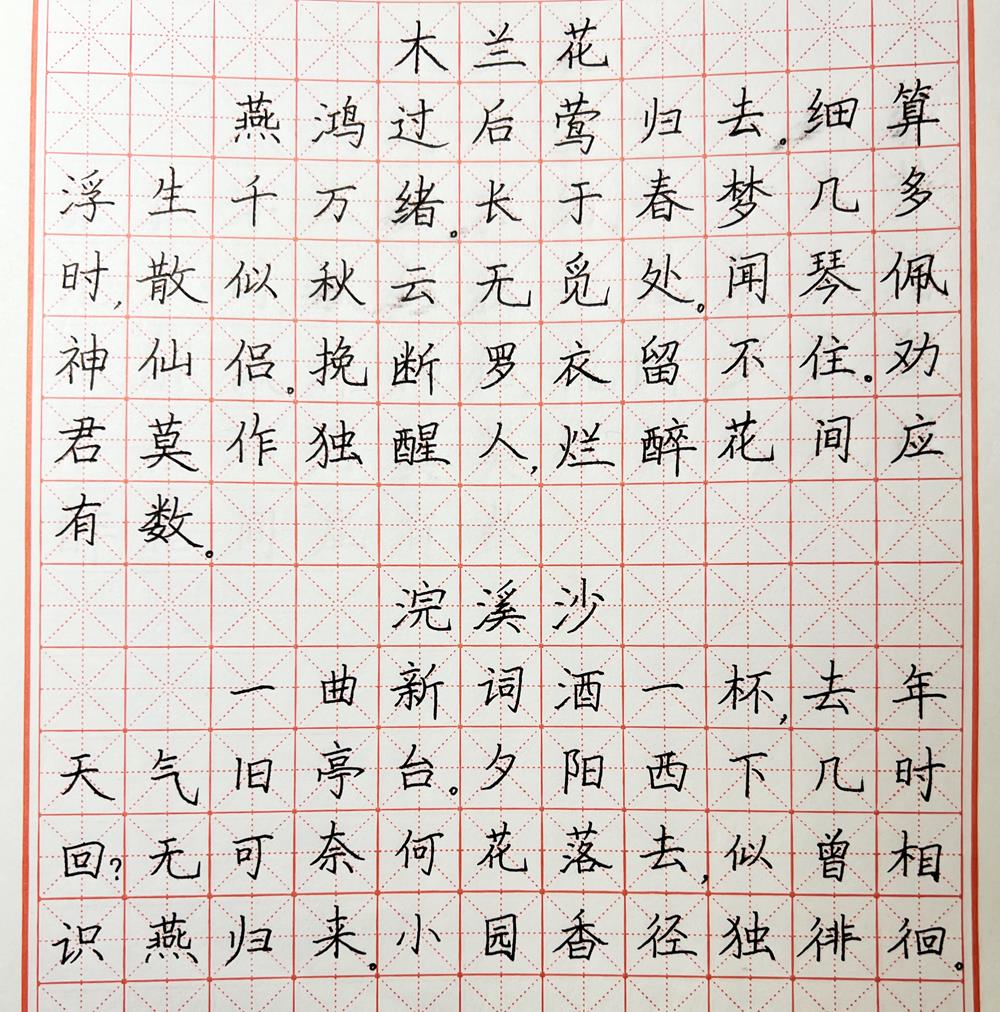 木兰花
燕鸿过后莺归去。细算
浮生千万绪。长于春梦几多
时,散似秋云无觅处。闻琴佩
神仙侣。挽断罗衣留不住。劝
君莫作独醒人,烂醉花间应
有数。
浣溪沙
一曲新词酒一杯,去年
天气旧亭台。夕阳西下几时
回?无可奈何花落去,似曾相
识燕归来。小园香径独徘徊。